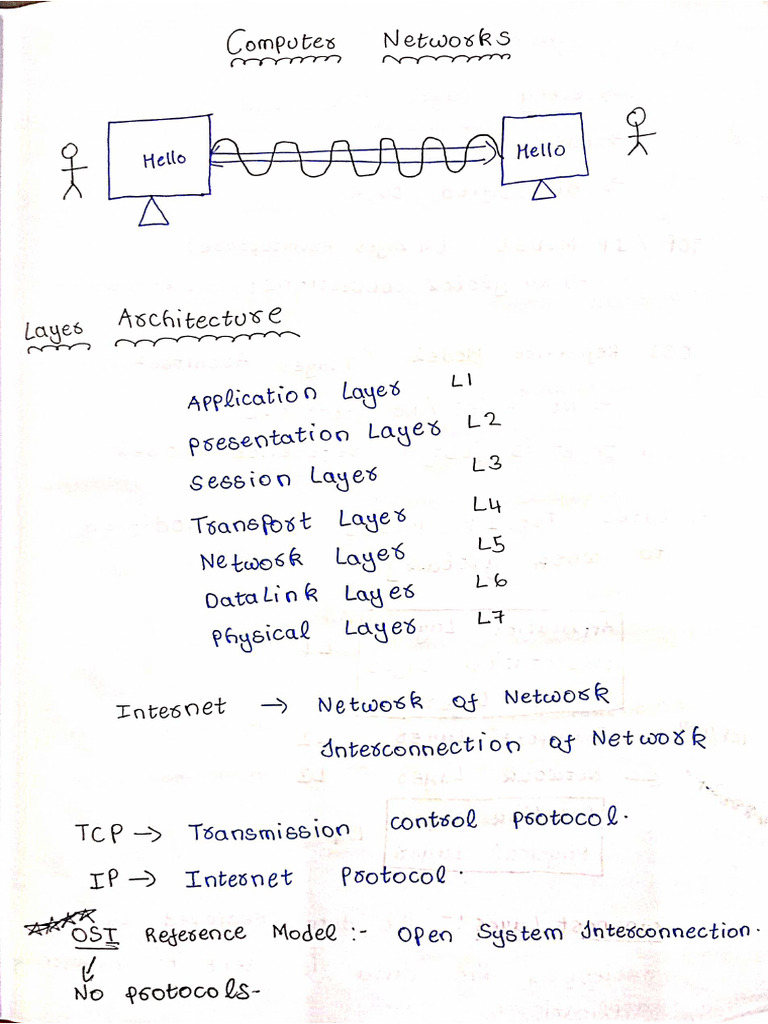 Computer Networks
Hello Hello
Layer Architecture
Application Layer L1
Presentation Layer L2
Session Layer L3
Transport Layer L4
Network Layer L5
DataLink Layer L6
Physical Layer L7
Internet → Network of Network
Interconnection of Network
TCP → Transmission control protocol.
IP → Internet Protocol.
OSI Reference Model :- Open System Interconnection.
No protocols-